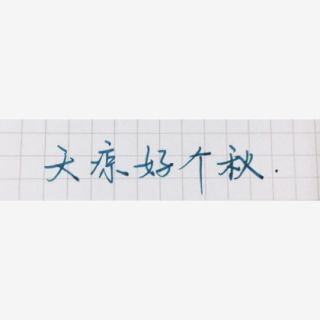 天凉好个秋.